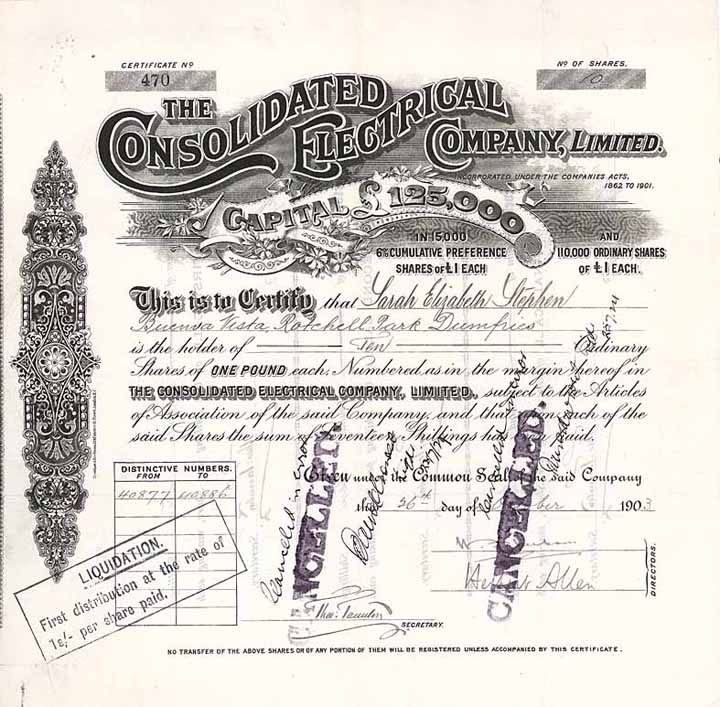 CERTIFICATE Nº
470
Nº OF SHARES.
10
THE
CONSOLIDATED
ELECTRICAL
COMPANY, LIMITED.
INCORPORATED UNDER THE COMPANIES ACTS,
1862 TO 1901.
CAPITAL £125,000
IN 15000
6% CUMULATIVE PREFERENCE
SHARES OF £1 EACH
AND
110,000 ORDINARY SHARES
OF £1 EACH.
This is to Certify that Sarah Elizabeth Stephen
Buenva Vista, Rotchell Park Dumfries
is the holder of Ten Ordinary
Shares of ONE POUND each, Numbered as in the margin hereof in
THE CONSOLIDATED ELECTRICAL COMPANY, LIMITED, subject to the Articles
of Association of the said Company, and that upon each of the
said Shares the sum of Seventeen Shillings has been paid.
DISTINCTIVE NUMBERS.
FROM TO
40877 40886
Given under the Common Seal of the said Company
the 26th day of October 1903
Herbert Allen
DIRECTORS.
SECRETARY.
CANCELLED.
CANCELLED.
Cancelled in error
Cancelled in error
LIQUIDATION.
First distribution at the rate of
1s/- per share paid.
NO TRANSFER OF THE ABOVE SHARES OR OF ANY PORTION OF THEM WILL BE REGISTERED UNLESS ACCOMPANIED BY THIS CERTIFICATE.